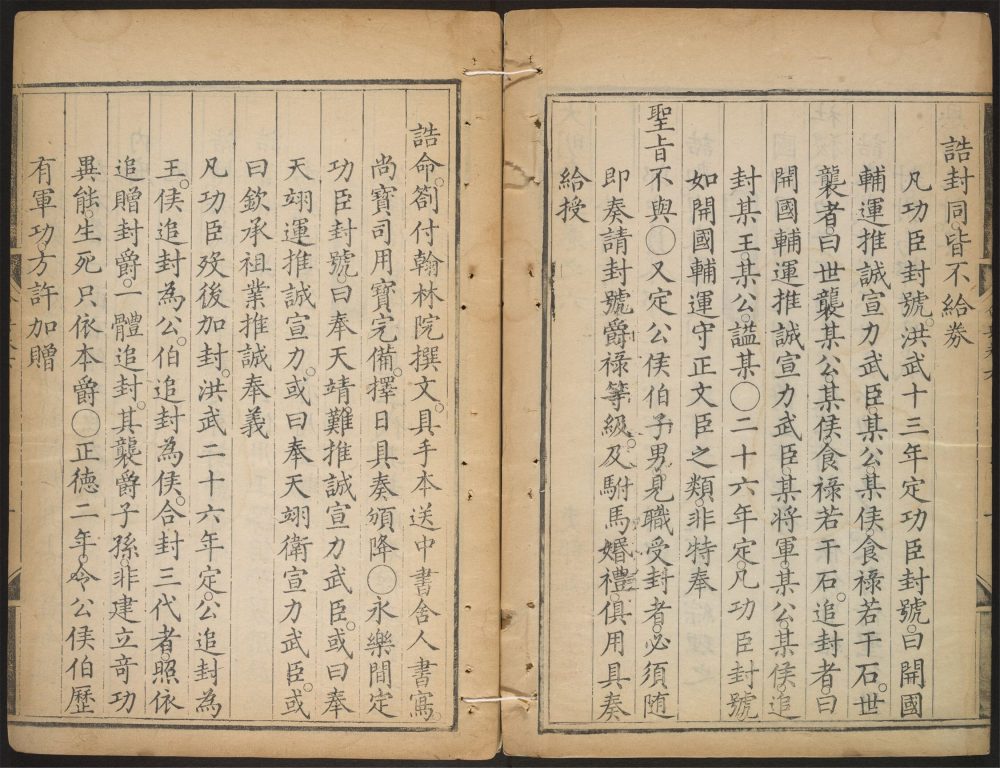 誥封同。皆不給券
凡功臣封號。洪武十三年定功臣封號。曰開國
輔運推誠宣力武臣。某公。某侯食祿若干石。世
襲者。曰世襲某公。某侯食祿若干石。追封者。曰
開國輔運推誠宣力武臣。某將軍。某公。某侯。追
封某王。某公。謚某○二十六年定。凡功臣封號
如開國輔運守正文臣之類。非特奉
聖旨不與○又定公侯伯子男。見職受封者。必須隨
即奏請封號。爵祿等級。及駙馬婚禮。俱用具奏
給授
誥命。劄付翰林院撰文。具手本送中書舍人書寫。
尚寶司用寶完備。擇日具奏頒降○永樂間定
功臣封號。曰奉天靖難推誠宣力武臣。或曰奉
天翊運推誠宣力。或曰奉天翊衛宣力武臣。或
曰欽承祖業推誠奉義
凡功臣歿後加封。洪武二十六年定。公追封為
王。侯追封為公。伯追封為侯。合封三代者。照依
追贈封爵。一體追封。其襲爵子孫。非建立奇功
異能。生死只依本爵○正德二年。令公侯伯歷
有軍功。方許加贈